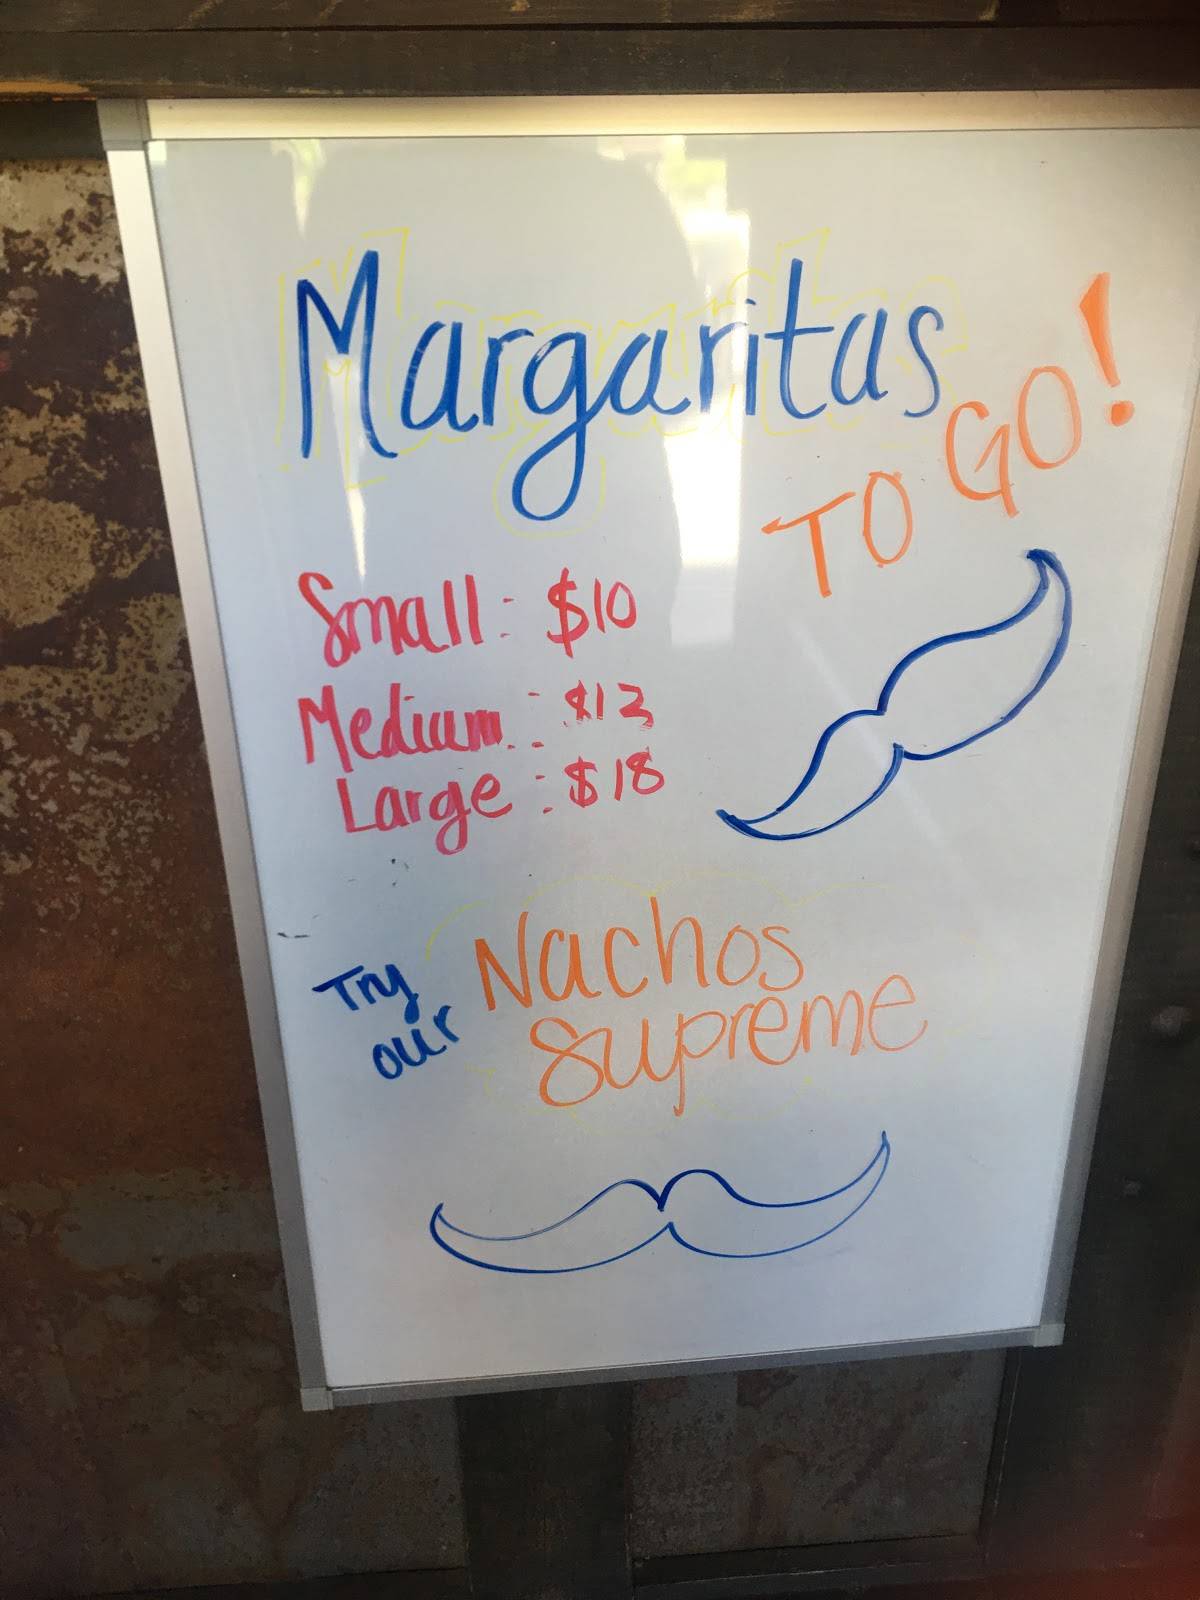 Margaritas
TO GO!
Small: $10
Medium: $13
Large: $18
Try our
Nachos
Supreme